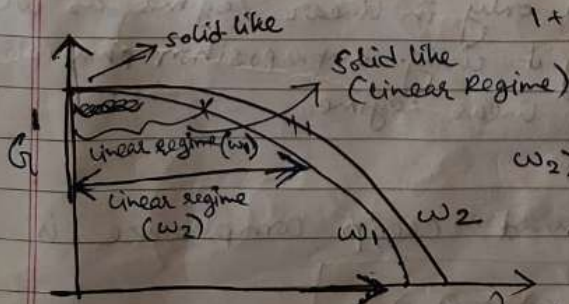 1+
solid like
solid like
(Linear Regime)
G
Linear regime (ω1)
ω2
Linear regime
(ω2)
ω1
ω2